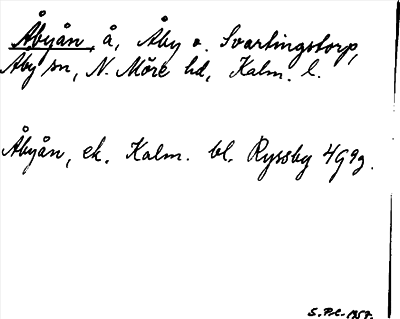 Åbyån, å, Åby o. Svartingstorp,
Åby sn, N. Möre hd, Kalm. l.
Åbyån, ek. Kalm. bl. Ryssby 4G9g.